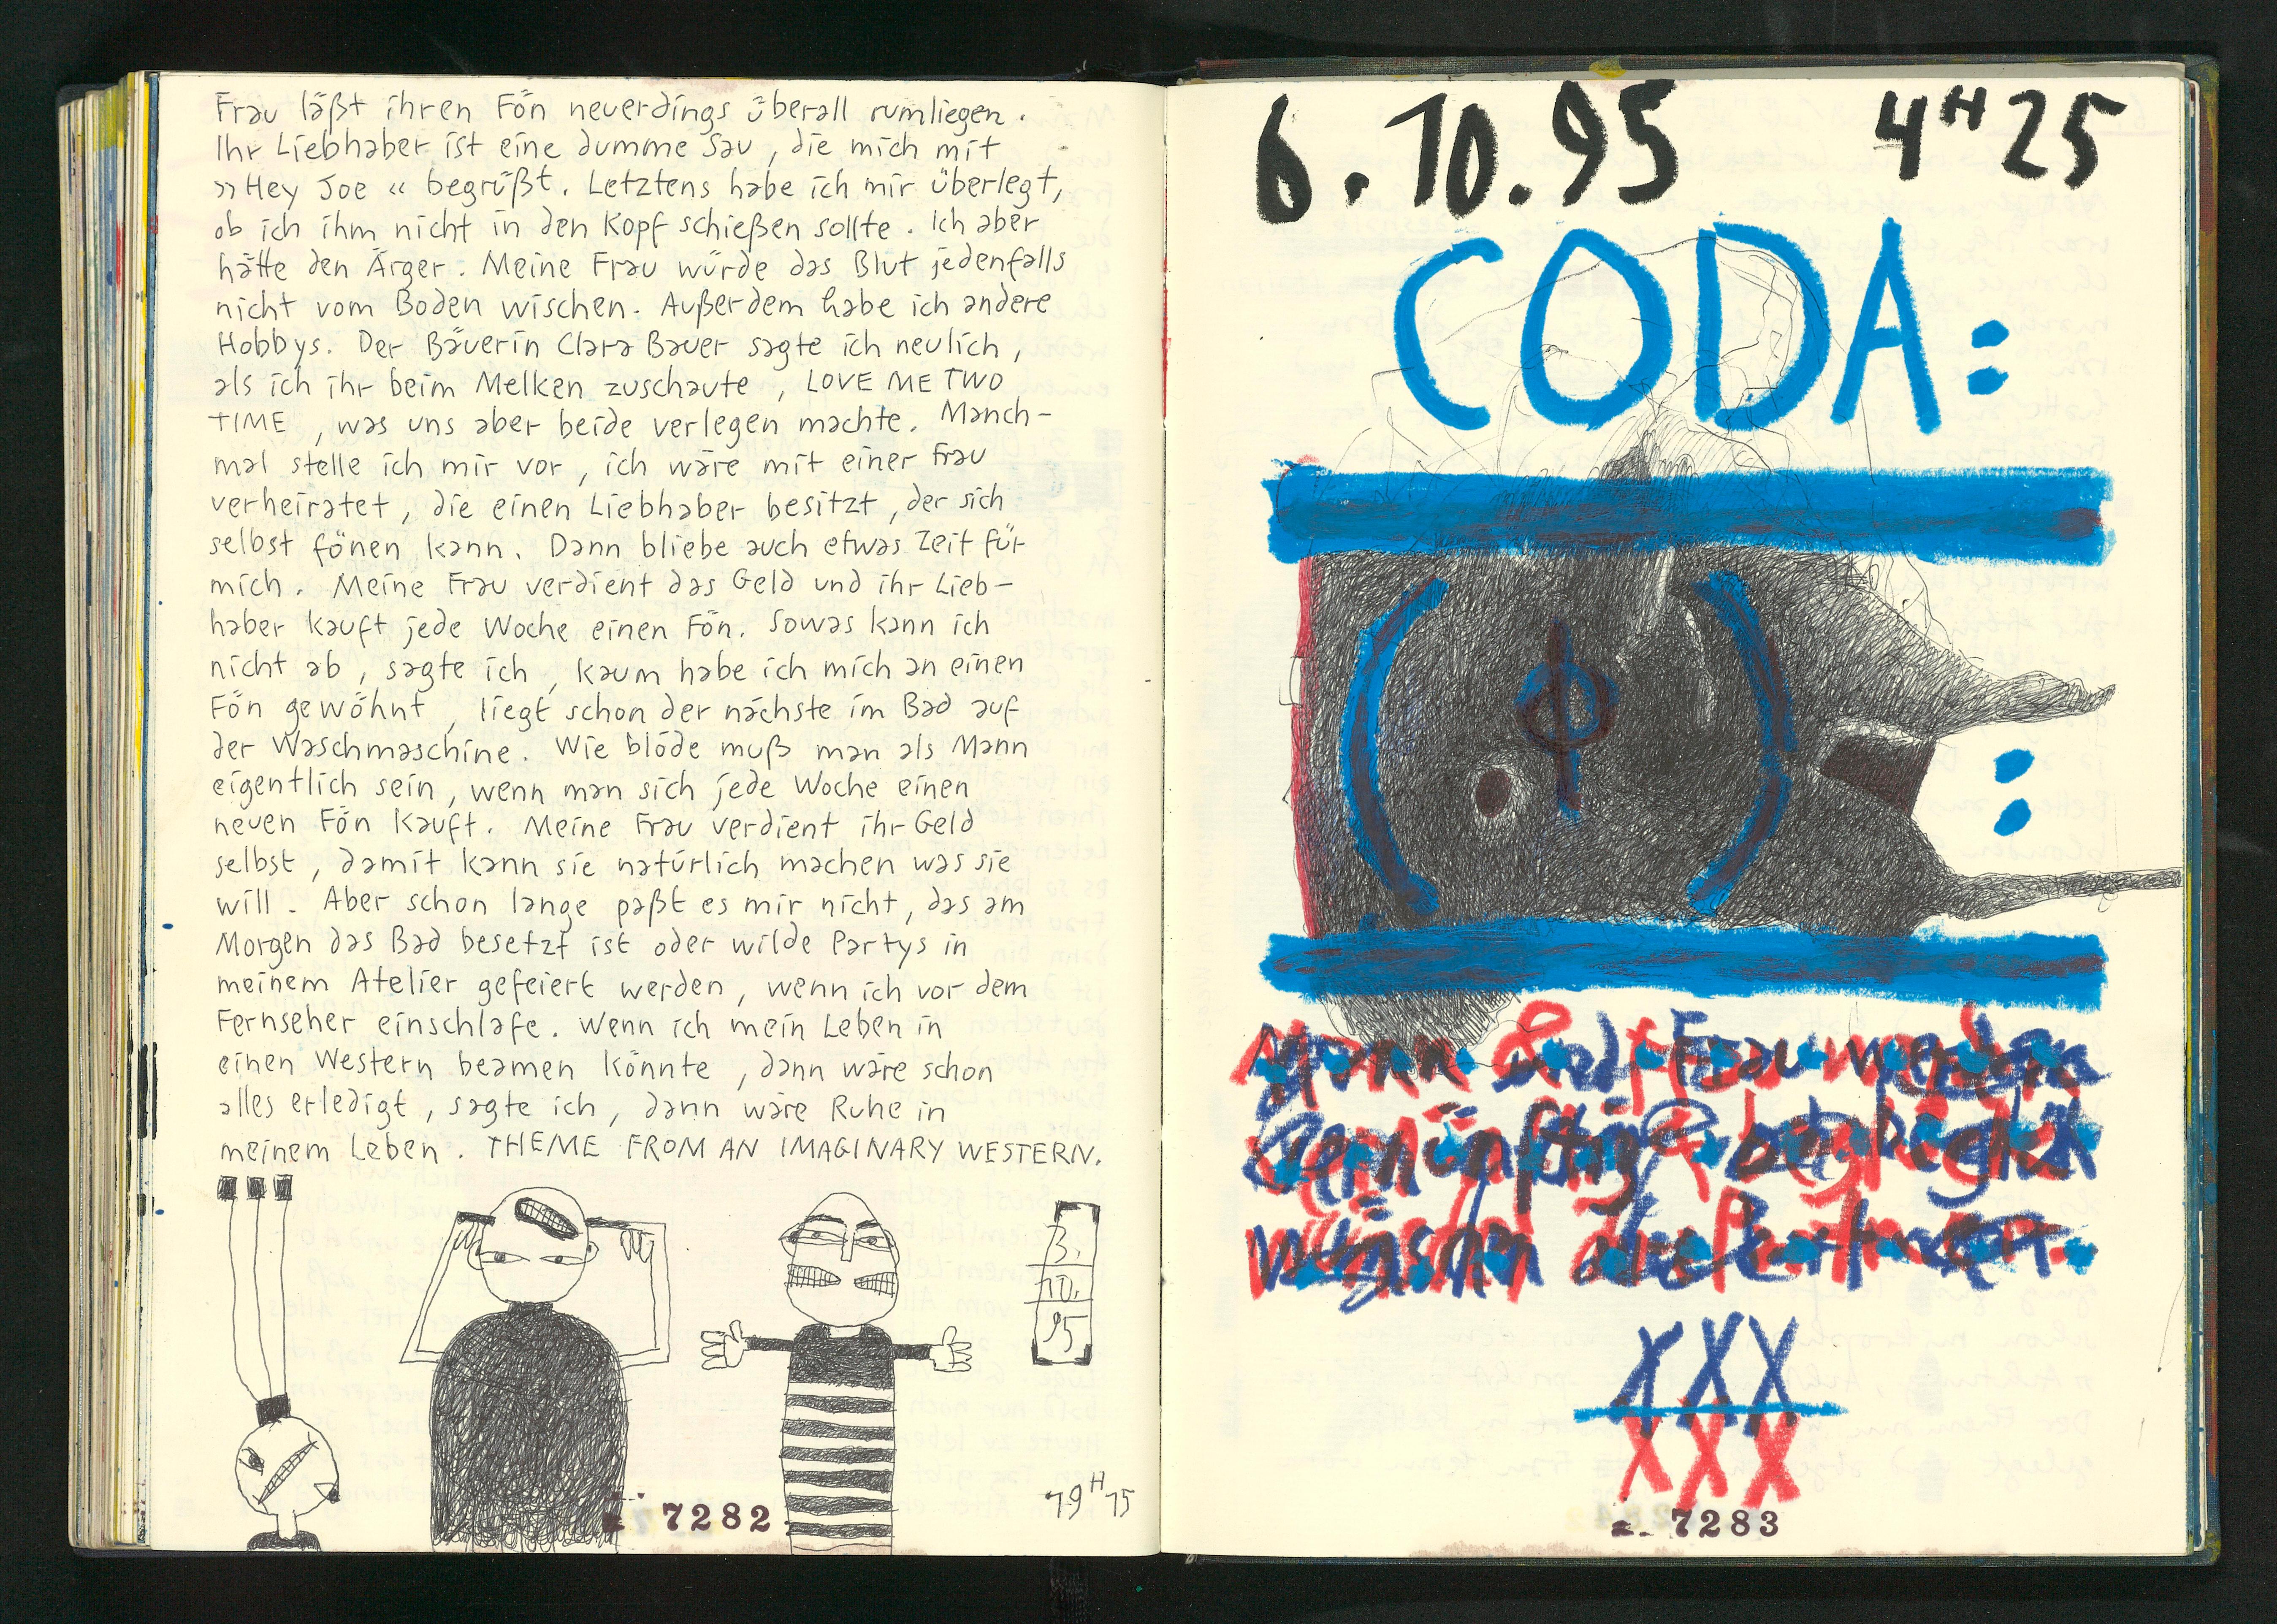 Frau läßt ihren Fön neuerdings überall rumliegen.
Ihr Liebhaber ist eine dumme Sau, die mich mit
»Hey Joe« begrüßt. Letztens habe ich mir überlegt,
ob ich ihm nicht in den Kopf schießen sollte. Ich aber
hätte den Ärger. Meine Frau würde das Blut jedenfalls
nicht vom Boden wischen. Außerdem habe ich andere
Hobbys. Der Bäuerin Clara Bauer sagte ich neulich,
als ich ihr beim Melken zuschaute, LOVE ME TWO
TIME, was uns aber beide verlegen machte. Manch-
mal stelle ich mir vor, ich wäre mit einer Frau
verheiratet, die einen Liebhaber besitzt, der sich
selbst fönen kann. Dann bliebe auch etwas Zeit für
mich. Meine Frau verdient das Geld und ihr Lieb-
haber kauft jede Woche einen Fön. Sowas kann ich
nicht ab, sagte ich, kaum habe ich mich an einen
Fön gewöhnt, liegt schon der nächste im Bad auf
der Waschmaschine. Wie blöde muß man als Mann
eigentlich sein, wenn man sich jede Woche einen
neuen Fön kauft. Meine Frau verdient ihr Geld
selbst, damit kann sie natürlich machen was sie
will. Aber schon lange paßt es mir nicht, das am
Morgen das Bad besetzt ist oder wilde Partys in
meinem Atelier gefeiert werden, wenn ich vor dem
Fernseher einschlafe. Wenn ich mein Leben in
einen Western beamen könnte, dann wäre schon
alles erledigt, sagte ich, dann wäre Ruhe in
meinem Leben. THEME FROM AN IMAGINARY WESTERN.
3.
10.
95
19H15
7282
6.10.95 4H25
CODA:
( ϕ ) :
Mann und Frau werden
vernünftig
XXX
XXX
7283